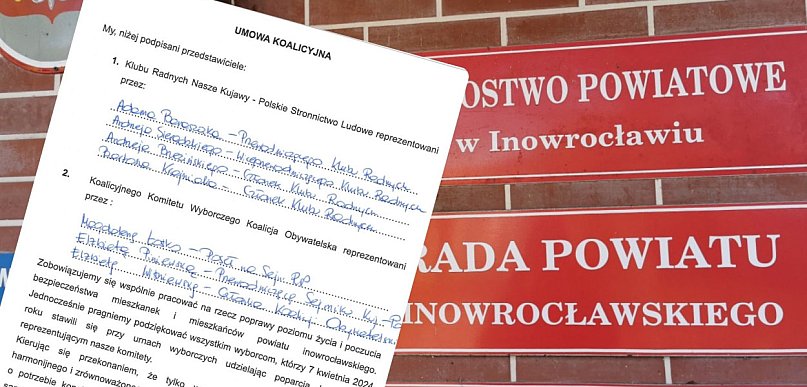 UMOWA KOALICYJNA
My, niżej podpisani przedstawiciele:
1. Klubu Radnych Nasze Kujawy - Polskie Stronnictwo Ludowe reprezentowani
przez:
Adama Banaszaka - Przewodniczącego Klubu Radnych
Andrzeja - Wiceprzewodniczącego Klubu Radnych
Andrzeja - Członek Klubu Radnych
Bartosza Krajniaka - Członek Klubu Radnych
2. Koalicyjnego Komitetu Wyborczego Koalicja Obywatelska reprezentowani
przez :
Magdalenę Łośko - Poseł na Sejm RP
Elżbietę Piniewską - Przewodniczącą Sejmiku Kuj-Po
Elżbietę - Członka Koalicji Obywatelskiej
Zobowiązujemy się wspólnie pracować na rzecz poprawy poziomu życia i poczucia
bezpieczeństwa mieszkanek i mieszkańców powiatu inowrocławskiego.
Jednocześnie pragniemy podziękować wszystkim wyborcom, którzy 7 kwietnia 2024
roku stawili się przy urnach wyborczych udzielając poparcia
reprezentującym nasze komitety.
Kierując się przekonaniem, że tylko
harmonijnego i zrównoważone
o potrzebie ko
OSTWO POWIATOWE
w Inowrocławiu
RADA POWIATU
INOWROCŁAWSKIEGO